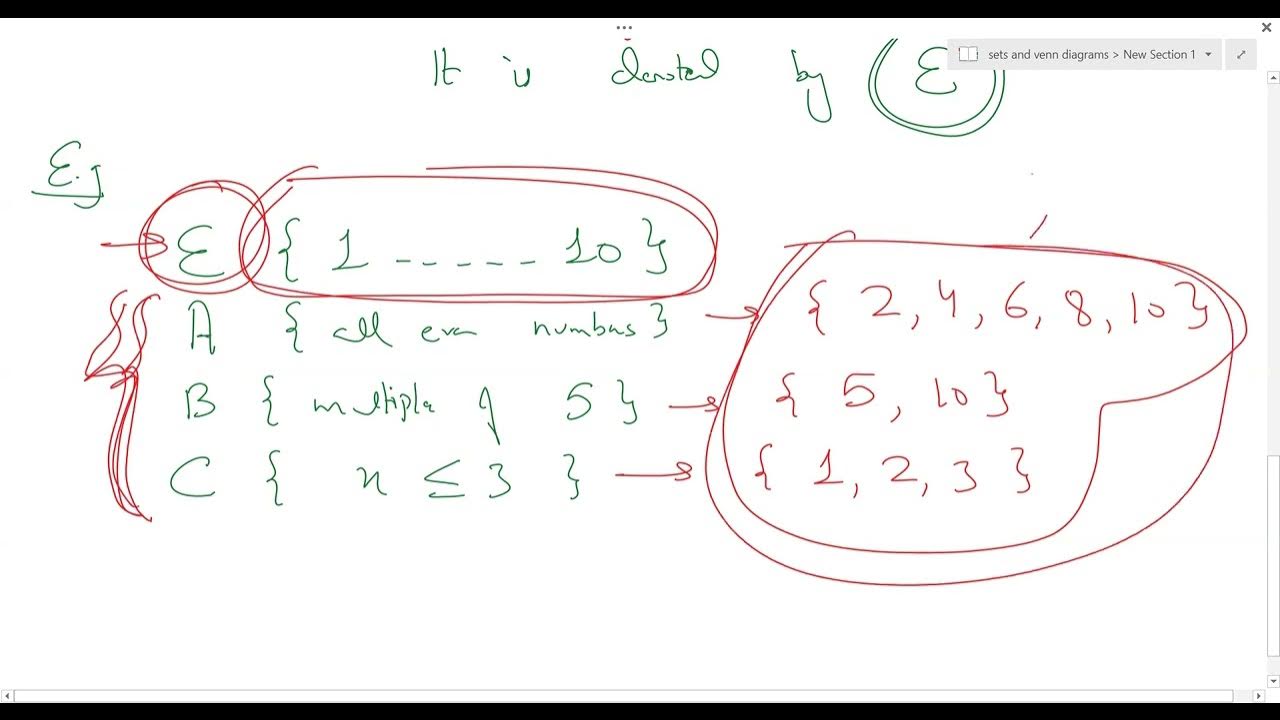 sets and venn diagrams > New Section 1
It is denoted by ℰ
E.g
ℰ { 1 ----- 10 }
A { all even numbers } → { 2, 4, 6, 8, 10 }
B { multiple of 5 } → { 5, 10 }
C { x ≤ 3 } → { 1, 2, 3 }